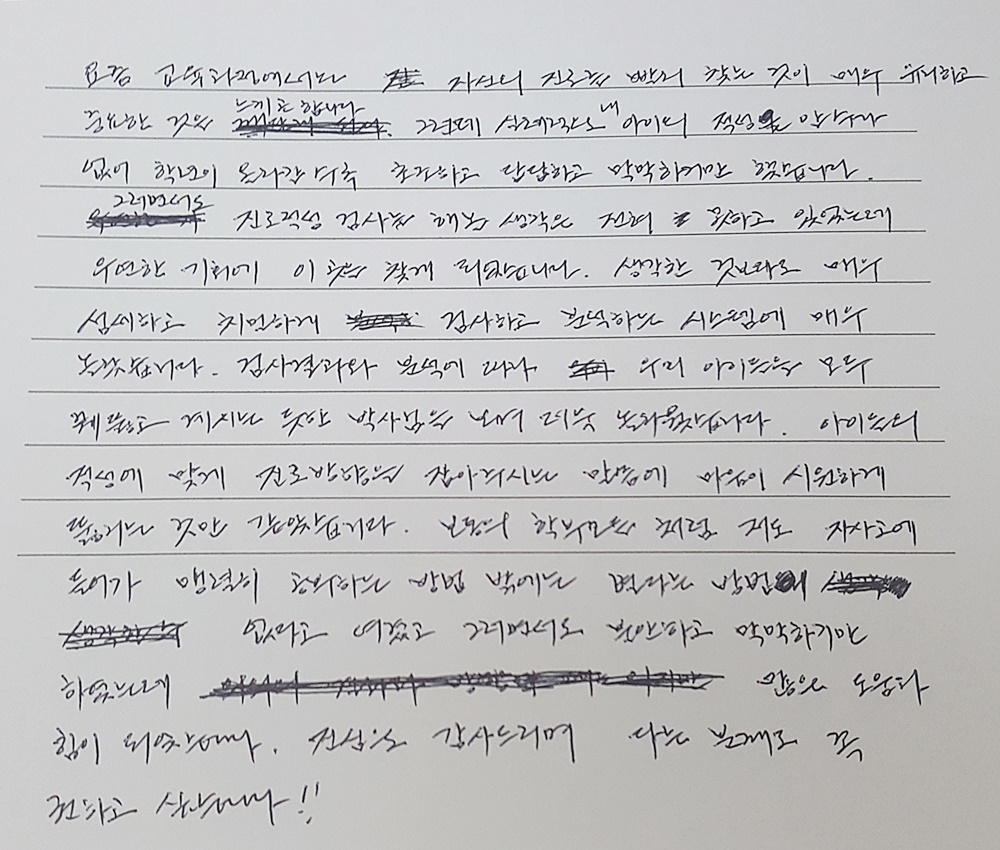 요즘 교육과정에서는 자신의 진로를 빨리 찾는 것이 매우 유리하고
중요한 것을 느끼곤 합니다. 그런데 실제로는 내 아이의 적성을 알 수가
없어 학년이 올라갈수록 초조하고 답답하고 막막하기만 했습니다.
그러면서도 진로적성 검사를 해볼 생각은 전혀 못하고 있었는데
우연한 기회에 이 곳을 찾게 되었습니다. 생각한 것보다도 매우
섬세하고 치밀하게 검사하고 분석하는 시스템에 매우
놀랐습니다. 검사결과와 분석에 따라 우리 아이들을 모두
꿰뚫고 계시는 듯한 박사님을 보며 더욱 놀라웠습니다. 아이들의
적성에 맞게 진로방향을 잡아주시는 말씀에 마음이 시원하게
뚫리는 것만 같았습니다. 보통의 학부모들처럼 저도 자사고에
들어가 맹렬히 공부하는 방법 밖에는 별다른 방법이
없다고 여겼고 그러면서도 불안하고 막막하기만
하였는데 많은 도움과
힘이 되었습니다. 진심으로 감사드리며 다른 분께도 꼭
권하고 싶습니다!!